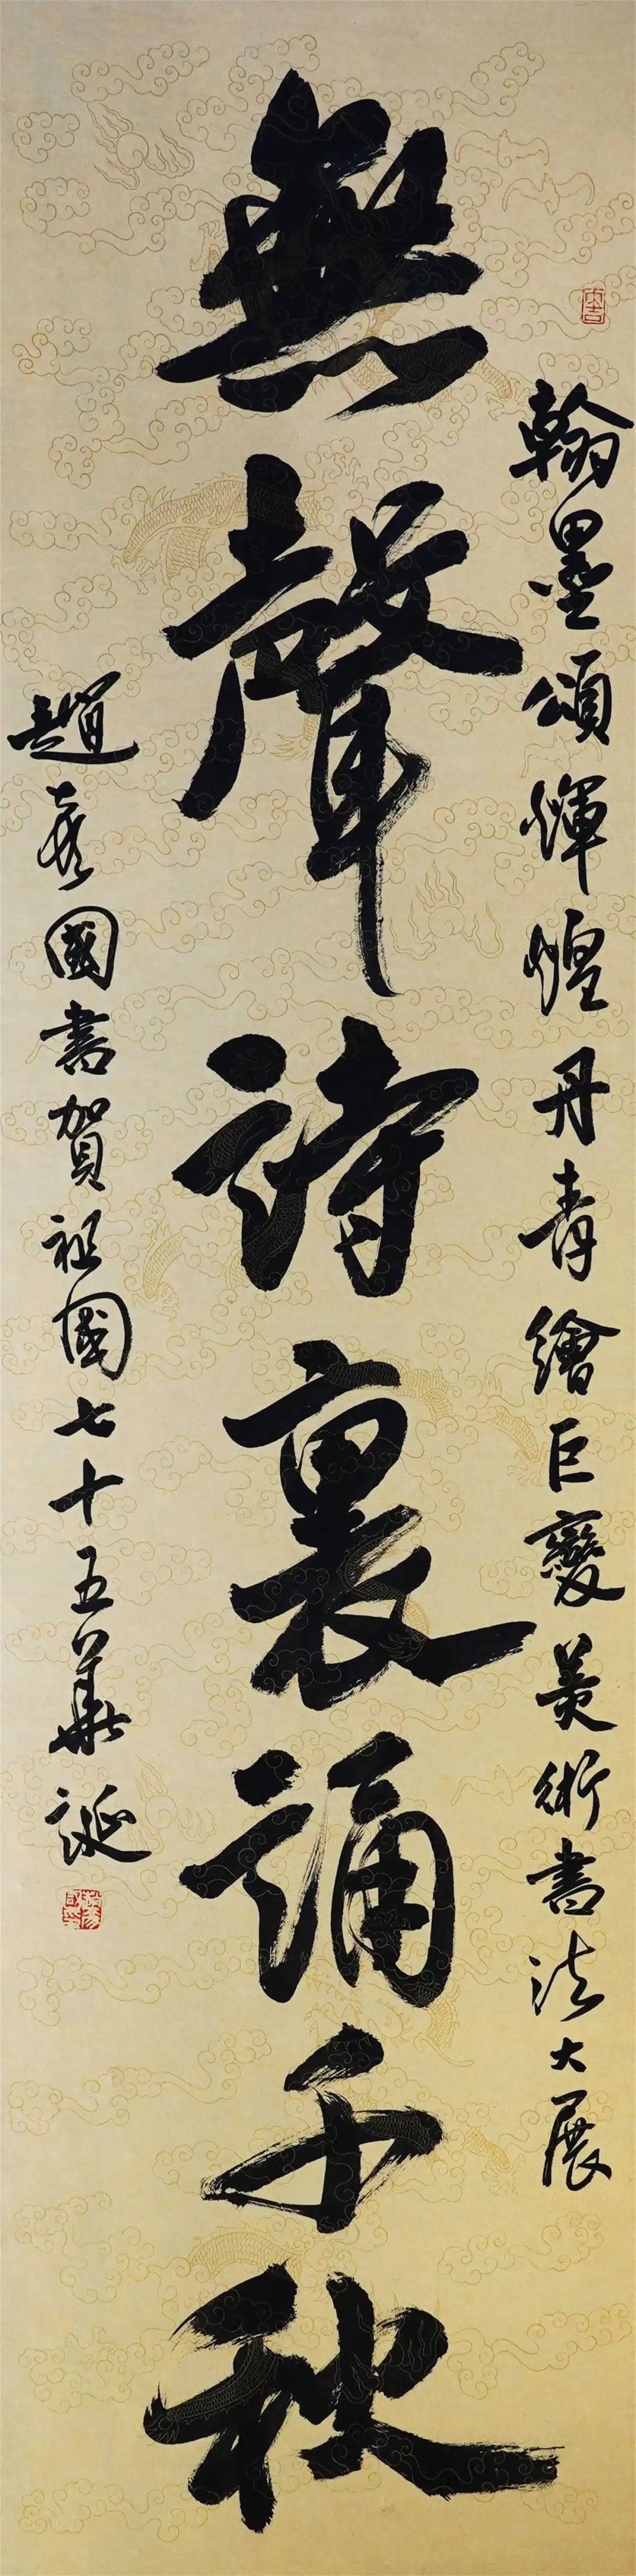 大吉
翰墨頌煇煌丹青繪巨變美術書法大展
無聲詩裏誦千秋
趙國書賀祖國七十五華誕